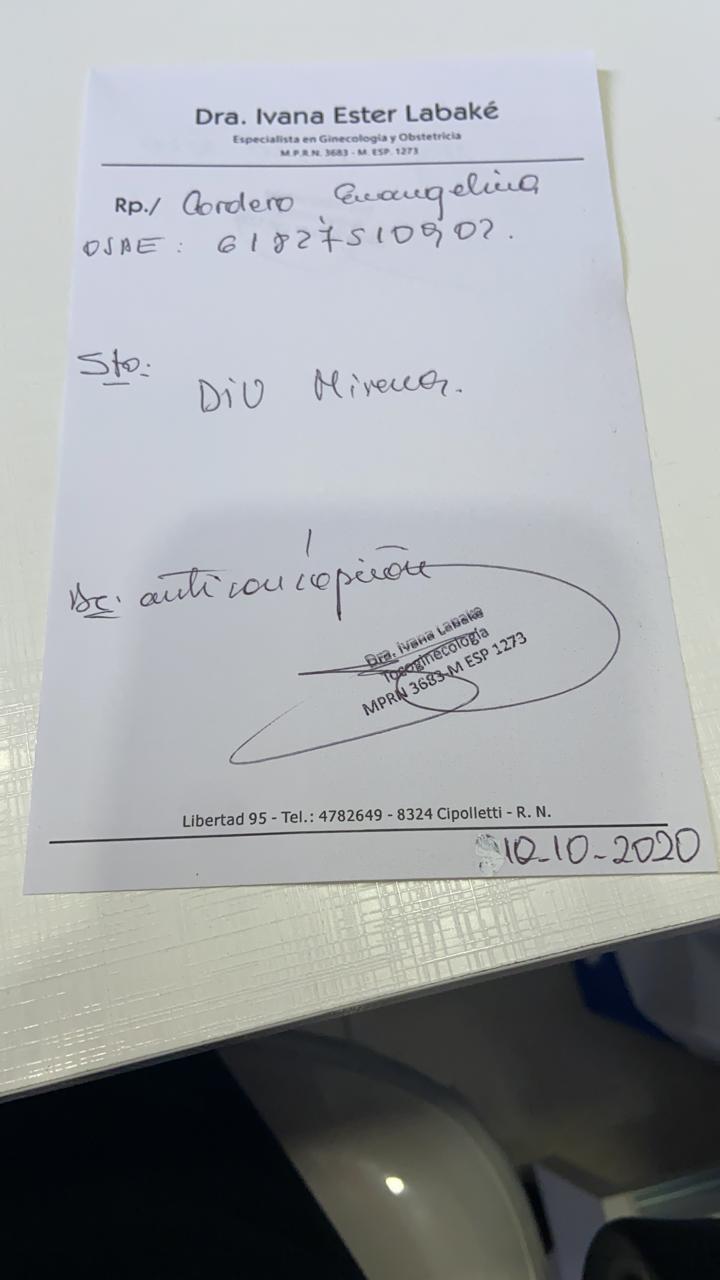 Dra. Ivana Ester Labaké
Especialista en Ginecología y Obstetricia
M.P.R.N. 3683 - M. ESP. 1273
Rp./ Cordero Evangelina
OSDE: 61827510902.
Sto:
DIU Mirena.
Dc: anticoncepción
Dra. Ivana Labaké
Tocoginecología
MPRN 3683-M ESP 1273
Libertad 95 - Tel.: 4782649 - 8324 Cipolletti - R. N.
10-10-2020